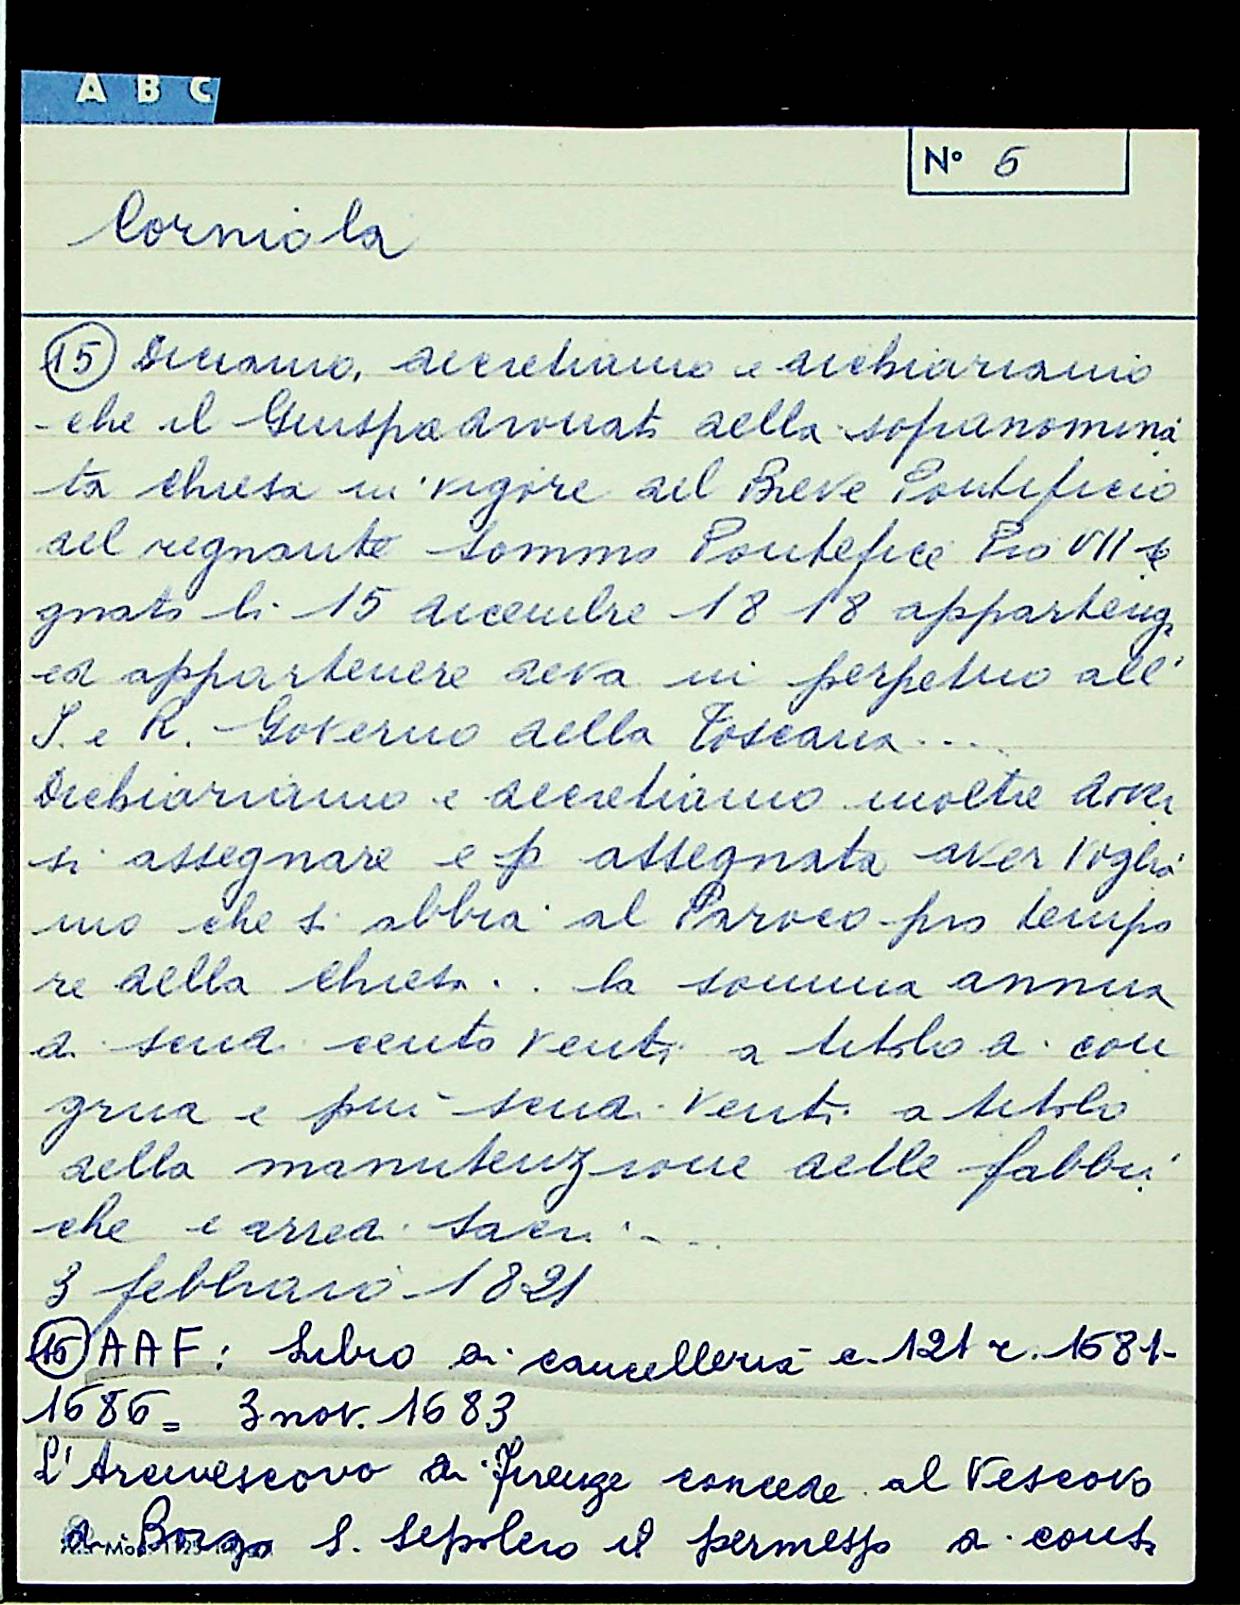 A B C
N° 5
Corniola
15 Diciamo, decretiamo e dichiariamo
che il Giuspadronato della sopranomina
ta chiesa in vigore del Breve Pontificio
del regnante Sommo Pontefice Pio VII se
gnato li 15 dicembre 1818 apparteng.
ed appartenere deva in perpetuo all'
I. e R. Governo della Toscana....
Dichiariamo e decretiamo inoltre dover
si assegnare e p assegnata aver voglia
mo che si abbia al Paroco pro tempo
re della chiesa.. la somma annua
di scudi cento venti a titolo di con
grua e più scudi venti a titolo
della manutenzione delle fabbri
che e arredi sacri ...
3 febbraio 1821
16 AAF: Libro di cancelleria c. 121 r. 1681-
1686= 3 nov. 1683
L'Arcivescovo di Firenze concede al Vescovo
di Borgo S. Sepolcro il permesso di cons.